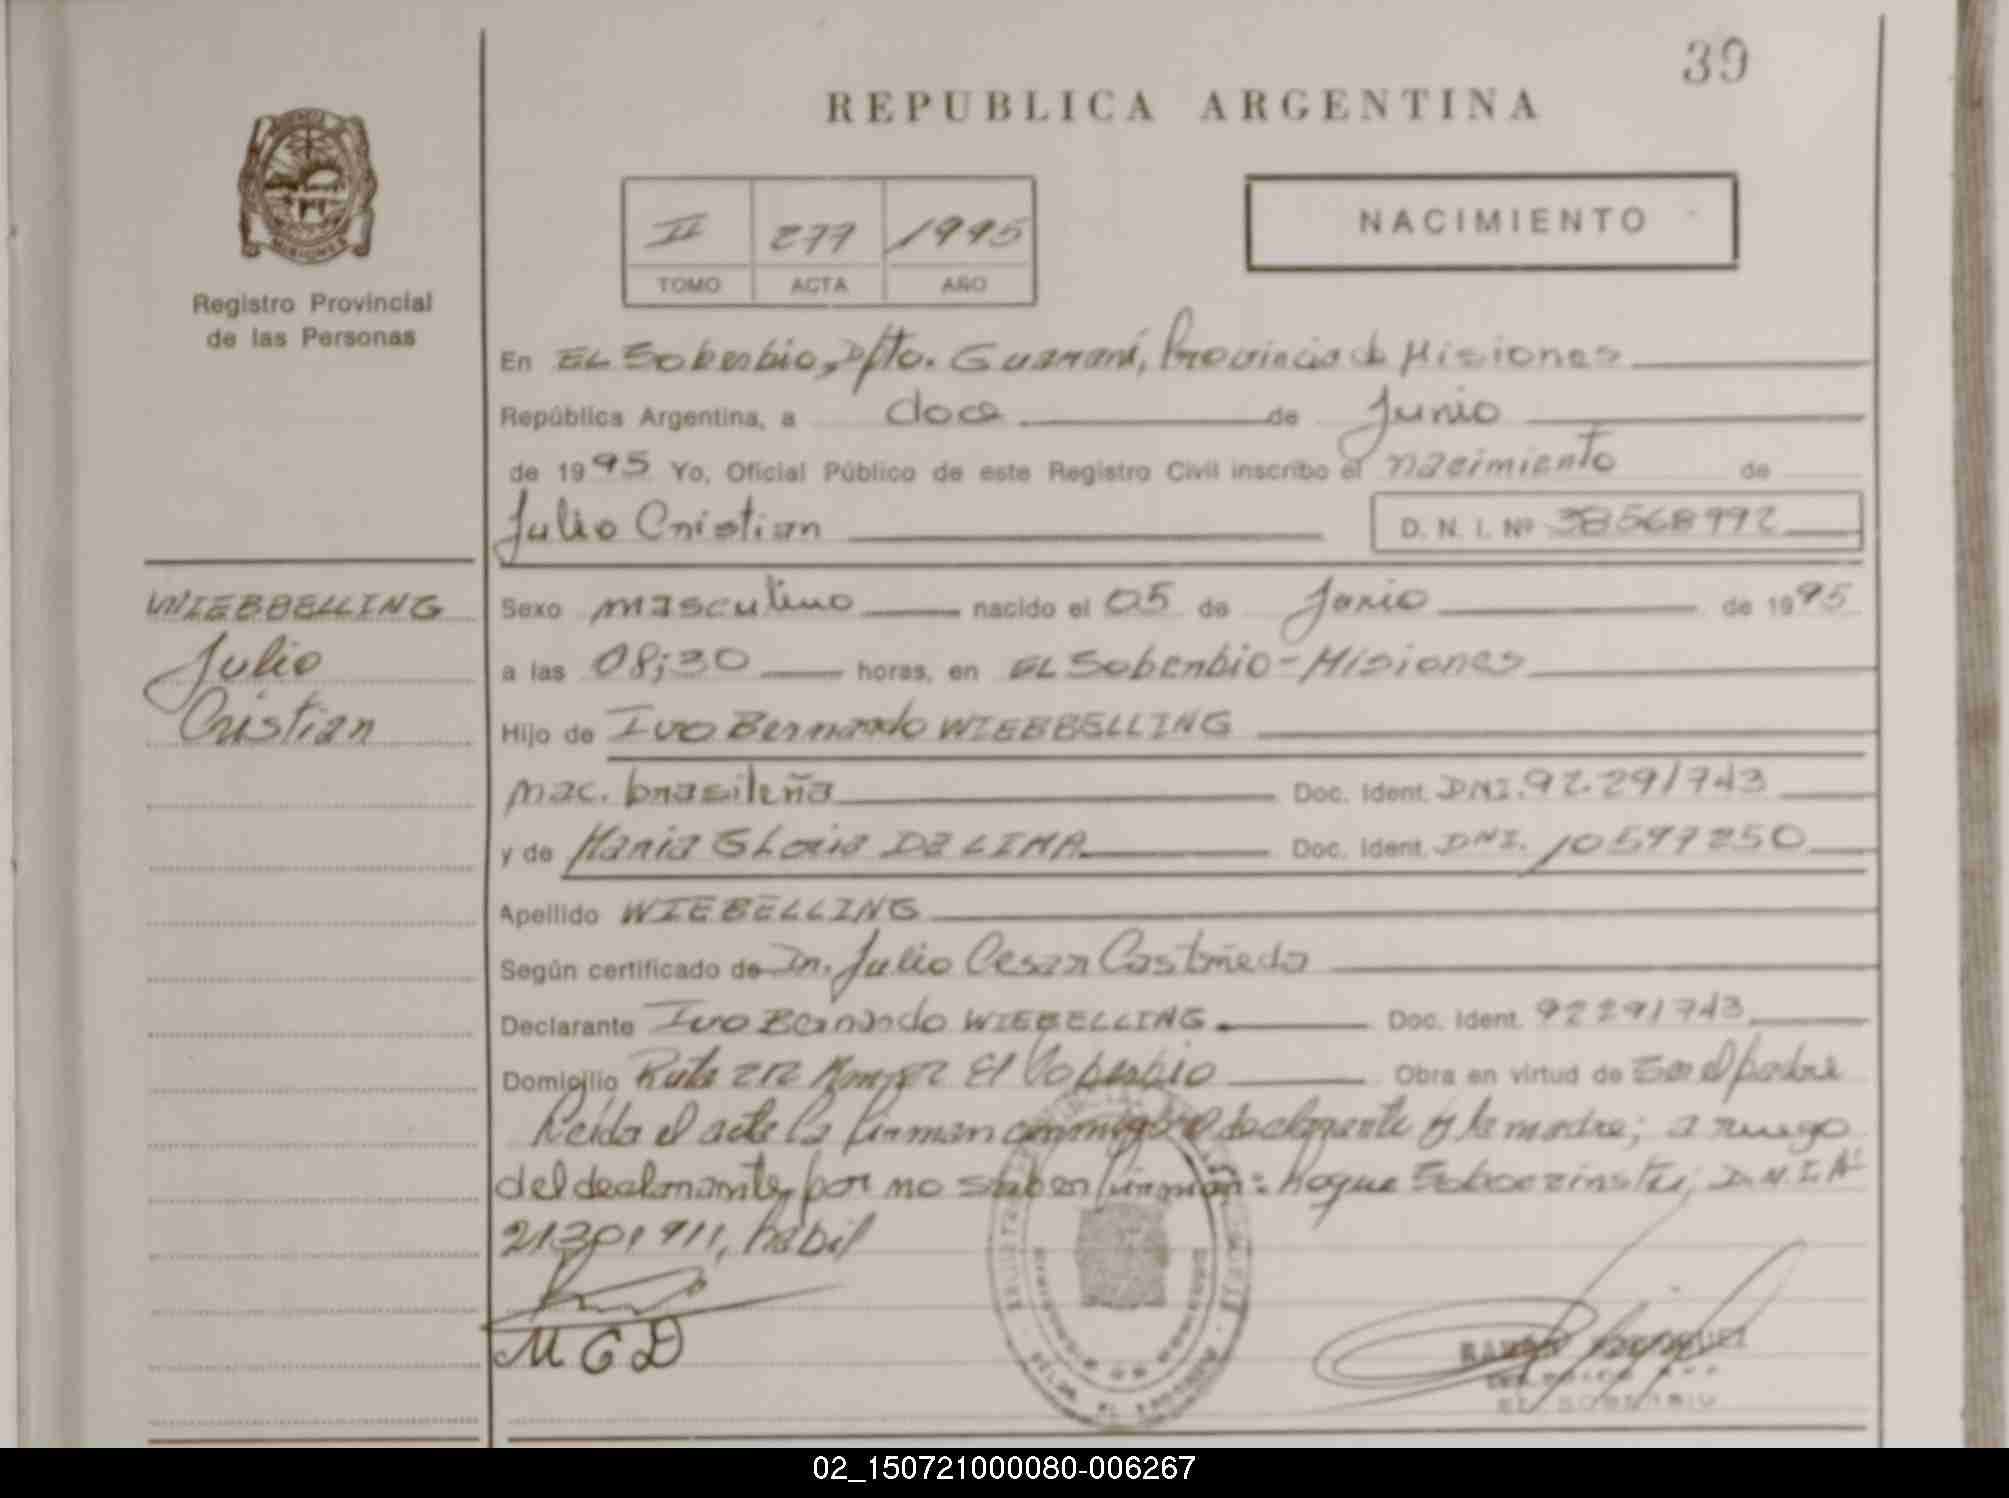 39
REPUBLICA ARGENTINA
II 277 1995
TOMO ACTA AÑO
NACIMIENTO
Registro Provincial
de las Personas
En EL Soberbio, Dpto. Guaraní, Provincia de Misiones
República Argentina, a doce de Junio
de 1995 Yo, Oficial Público de este Registro Civil inscribo el nacimiento de
Julio Cristian D. N. I. Nº 38568992
WIEBBELLING
Julio
Cristian
Sexo masculino nacido el 05 de Junio de 1995
a las 08;30 horas, en EL Soberbio-Misiones
Hijo de Ivo Bernardo WIEBBELLING
nac. brasileña Doc. Ident. DNI. 92.291743
y de Maria Gloria DE LIMA Doc. Ident. DNI. 10597250
Apellido WIEBELLING
Según certificado de Dr. Julio Cesar Castañeda
Declarante Ivo Bernardo WIEBELLING Doc. Ident. 92291743
Domicilio Ruta El Soberbio Obra en virtud de Ser el padre
Leída el acta la firman conmigo el declarante y la madre; a ruego
del declarante, por no saber firmar: Roque D.N.I.Nº
21301911, habil
M G D
EL SOBERBIO
02_150721000080-006267